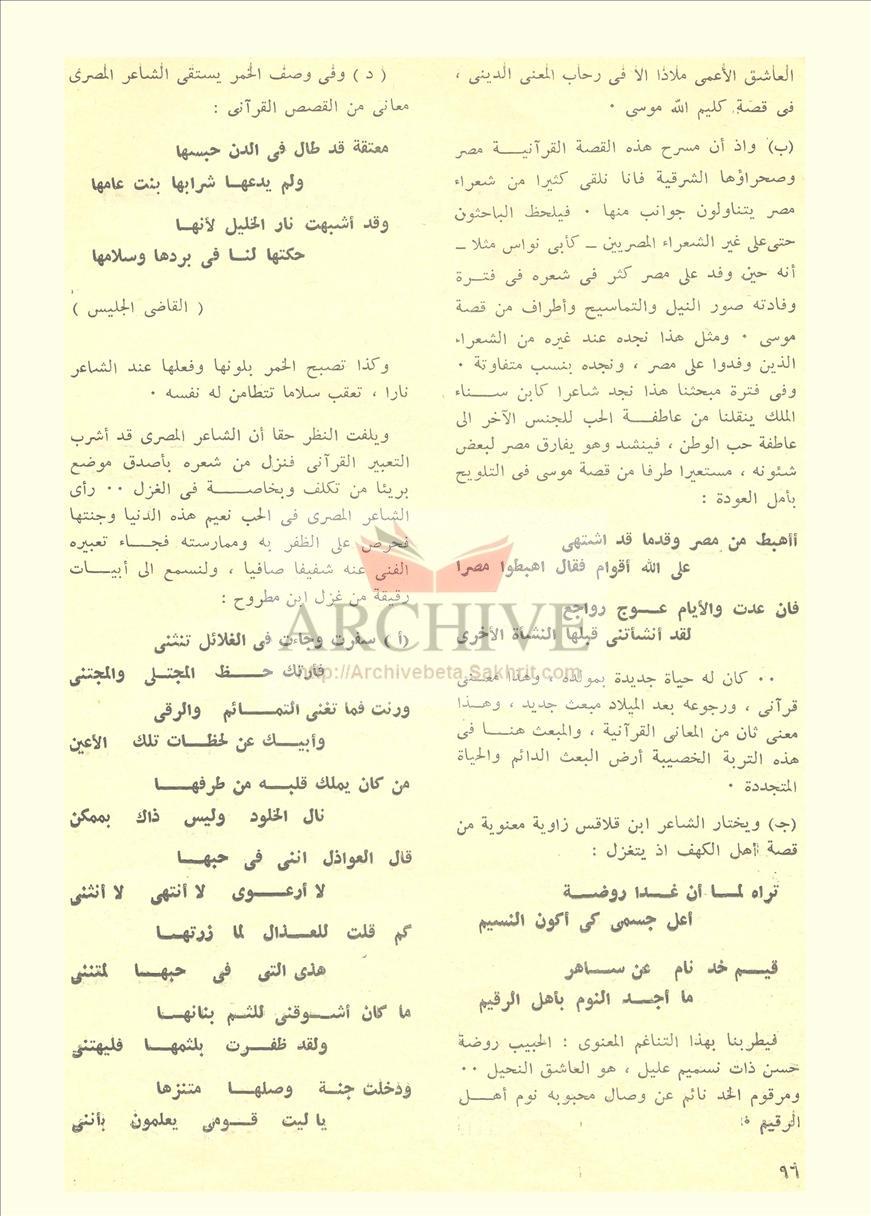 العاشق الأعمى ملاذا الا فى رحاب المعنى الدينى ،
فى قصة كليم الله موسى ·
(ب) واذ أن مسرح هذه القصة القرآنية مصر
وصحراؤها الشرقية فانا نلقى كثيرا من شعراء
مصر يتناولون جوانب منها · فيلحظ الباحثون
حتى على غير الشعراء المصريين – كأبى نواس مثلا –
أنه حين وفد على مصر كثر فى شعره فى فترة
وفادته صور النيل والتماسيح وأطراف من قصة
موسى · ومثل هذا نجده عند غيره من الشعراء
الذين وفدوا على مصر ، ونجده بنسب متفاوتة ·
وفى فترة مبحثنا هذا نجد شاعرا كابن سناء
الملك ينقلنا من عاطفة الحب للجنس الآخر الى
عاطفة حب الوطن ، فينشد وهو يفارق مصر لبعض
شئونه ، مستعيرا طرفا من قصة موسى فى التلويح
بأمل العودة :
أأهبط من مصر وقدما قد اشتهى
على الله أقوام فقال اهبطوا مصرا
فان عدت والأيام عوج رواجع
لقد أنشأتنى قبلها النشأة الأخرى
·· كان له حياة جديدة بمولده ، وهذا معنى
قرآنى ، ورجوعه بعد الميلاد مبعث جديد ، وهذا
معنى ثان من المعانى القرآنية ، والمبعث هنا فى
هذه التربة الخصيبة أرض البعث الدائم والحياة
المتجددة ·
(جـ) ويختار الشاعر ابن قلاقس زاوية معنوية من
قصة أهل الكهف اذ يتغزل :
تراه لما أن غدا روضة
أعل جسمى كى أكون النسيم
قيم خد نام عن ساهر
ما أجد النوم بأهل الرقيم
فيطربنا بهذا التناغم المعنوى : الحبيب روضة
حسن ذات نسميم عليل ، هو العاشق النحيل ··
ومرقوم الخد نائم عن وصال محبوبه نوم أهل
الرقيم ·
( د ) وفى وصف الخمر يستقى الشاعر المصرى
معانى من القصص القرآنى :
معتقة قد طال فى الدن حبسها
ولم يدعها شرابها بنت عامها
وقد أشبهت نار الخليل لأنها
حكتها لنا فى بردها وسلامها
( القاضى الجليس )
وكذا تصبح الخمر بلونها وفعلها عند الشاعر
نارا ، تعقب سلاما تتطامن له نفسه ·
ويلفت النظر حقا أن الشاعر المصرى قد أشرب
التعبير القرآنى فنزل من شعره بأصدق موضع
بريئا من تكلف وبخاصة فى الغزل ·· رأى
الشاعر المصرى فى الحب نعيم هذه الدنيا وجنتها
فحرص على الظفر به وممارسته فجاء تعبيره
الفنى عنه شفيفا صافيا ، ولنسمع الى أبيات
رقيقة من غزل ابن مطروح :
(أ) سفرت وجاءت فى الغلائل تنثنى
فأرتك حظ المجتلى والمجتنى
ورنت فما تغنى التمائم والرقى
وأبيك عن لحظات تلك الأعين
من كان يملك قلبه من طرفها
نال الخلود وليس ذاك بممكن
قال العواذل اننى فى حبها
لا أرعوى لا أنتهى لا أنثنى
كم قلت للعذال لما زرتها
هذى التى فى حبها لمتننى
ما كان أشوقنى للثم بنانها
ولقد ظفرت بلثمها فليهتنى
ودخلت جنة وصلها متنزها
يا ليت قومى يعلمون بأننى
٩٦
ARCHIVE
http://Archivebeta.Sakhrit.com